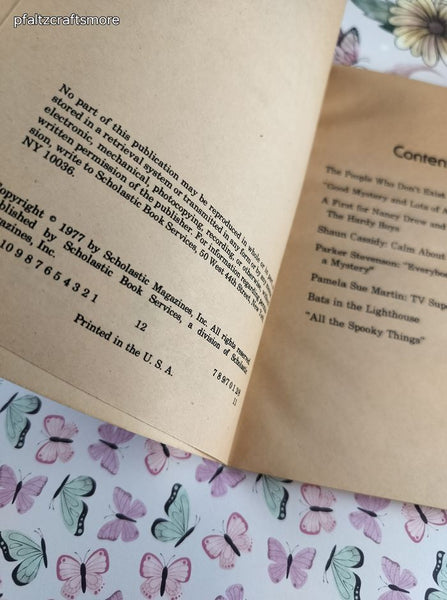 pfaltzcraftsmore
No part of this publication may be reproduced in whole or in part, or
stored in a retrieval system or transmitted in any form or by any means,
electronic, mechanical, photocopying, recording, or otherwise, without
written permission of the publisher. For information regarding permis-
sion, write to Scholastic Book Services, 50 West 44th Street, New York,
NY 10036.
Copyright © 1977 by Scholastic Magazines, Inc. All rights reserved.
Published by Scholastic Book Services, a division of Scholastic
Magazines, Inc.
10 9 8 7 6 5 4 3 2 1
12
7 8 9 7 0 1 2/8
11
Printed in the U. S. A.
Conten
The People Who Don't Exist
"Good Mystery and Lots of
A First for Nancy Drew and
The Hardy Boys
Shaun Cassidy: Calm About
Parker Stevenson: "Everyb
a Mystery"
Pamela Sue Martin: TV Su
Bats in the Lighthouse
"All the Spooky Things"